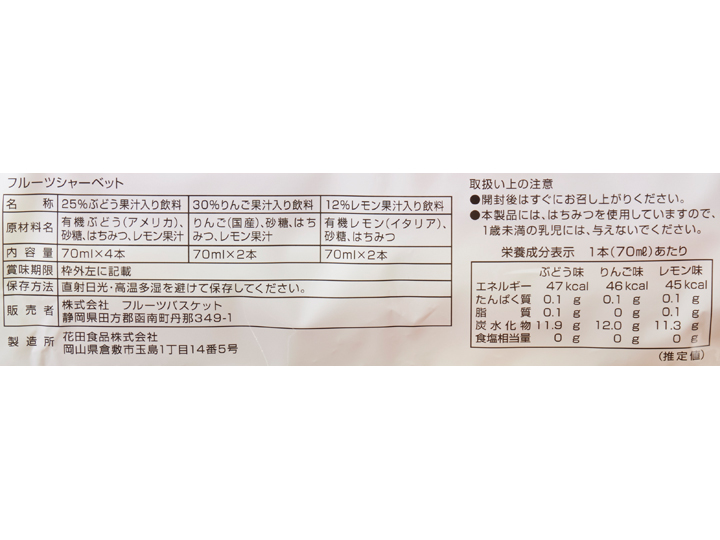 フルーツシャーベット
名　称　25%ぶどう果汁入り飲料　30%りんご果汁入り飲料　12%レモン果汁入り飲料
原材料名　有機ぶどう(アメリカ)、　りんご(国産)、砂糖、はち　有機レモン(イタリア)、
砂糖、はちみつ、レモン果汁　みつ、レモン果汁　砂糖、はちみつ
内容量　70ml×4本　70ml×2本　70ml×2本
賞味期限　枠外左に記載
保存方法　直射日光・高温多湿を避けて保存してください。
販売者　株式会社　フルーツバスケット
静岡県田方郡函南町丹那349-1
製造所　花田食品株式会社
岡山県倉敷市玉島1丁目14番5号
取扱い上の注意
●開封後はすぐにお召し上がりください。
●本製品には、はちみつを使用していますので、
1歳未満の乳児には、与えないでください。
栄養成分表示　1本(70㎖)あたり
ぶどう味　りんご味　レモン味
エネルギー　47kcal　46kcal　45kcal
たんぱく質　0.1 g　0.1 g　0.1 g
脂　質　0.1 g　0 g　0.1 g
炭水化物　11.9 g　12.0 g　11.3 g
食塩相当量　0 g　0 g　0 g
(推定値)